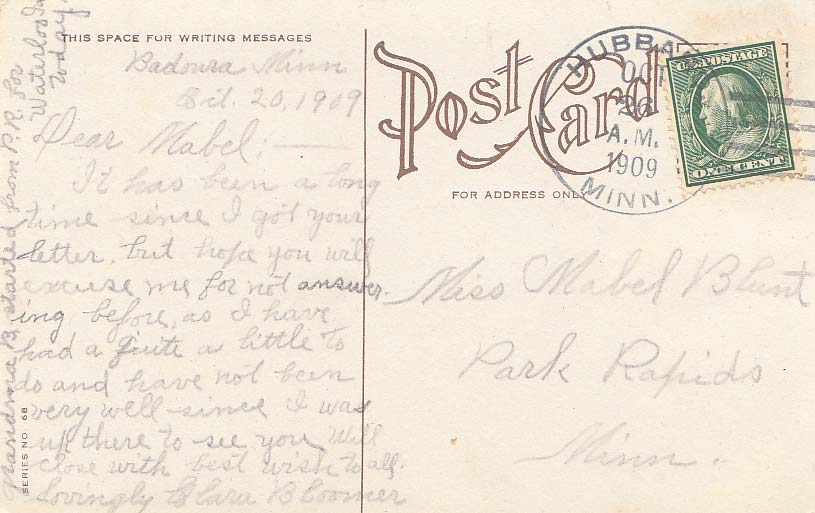 THIS SPACE FOR WRITING MESSAGES
Badoura Minn
Oct. 20, 1909
Dear Mabel: —
It has been a long
time since I got your
letter, but hope you will
excuse me for not answer-
ing before, as I have
had a quite a little to
do and have not been
very well since I was
up there to see you, Will
close with best wish to all.
Lovingly Clara Bloomer
Grandma B. started from P.R. for
Waterloo Ia
today.
SERIES NO 68
Post Card
FOR ADDRESS ONLY
HUBBARD
OCT
26
A.M.
1909
MINN.
U.S. POSTAGE
ONE CENT
Miss Mabel Blunt
Park Rapids
Minn.